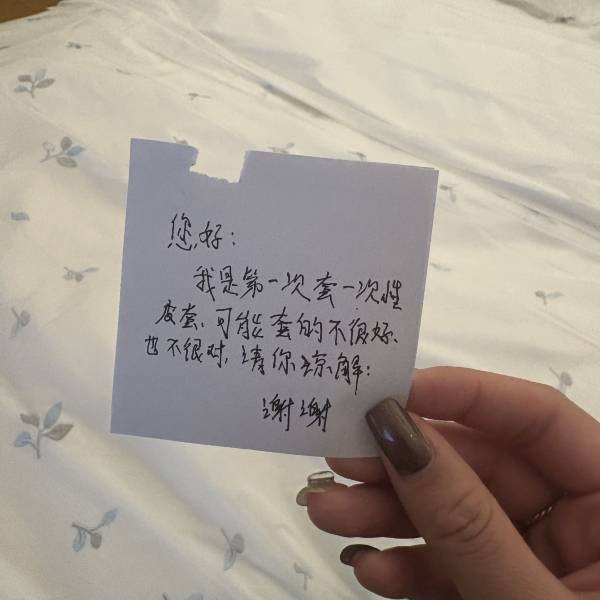 您好：
我是第一次套一次性
皮套、可能套的不很好、
也不很对，请你谅解：
谢谢